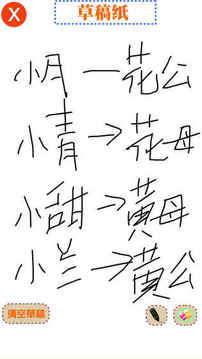 X
草稿纸
小月 — 花公
小青 → 花母
小甜 → 黄母
小兰 → 黄公
清空草稿